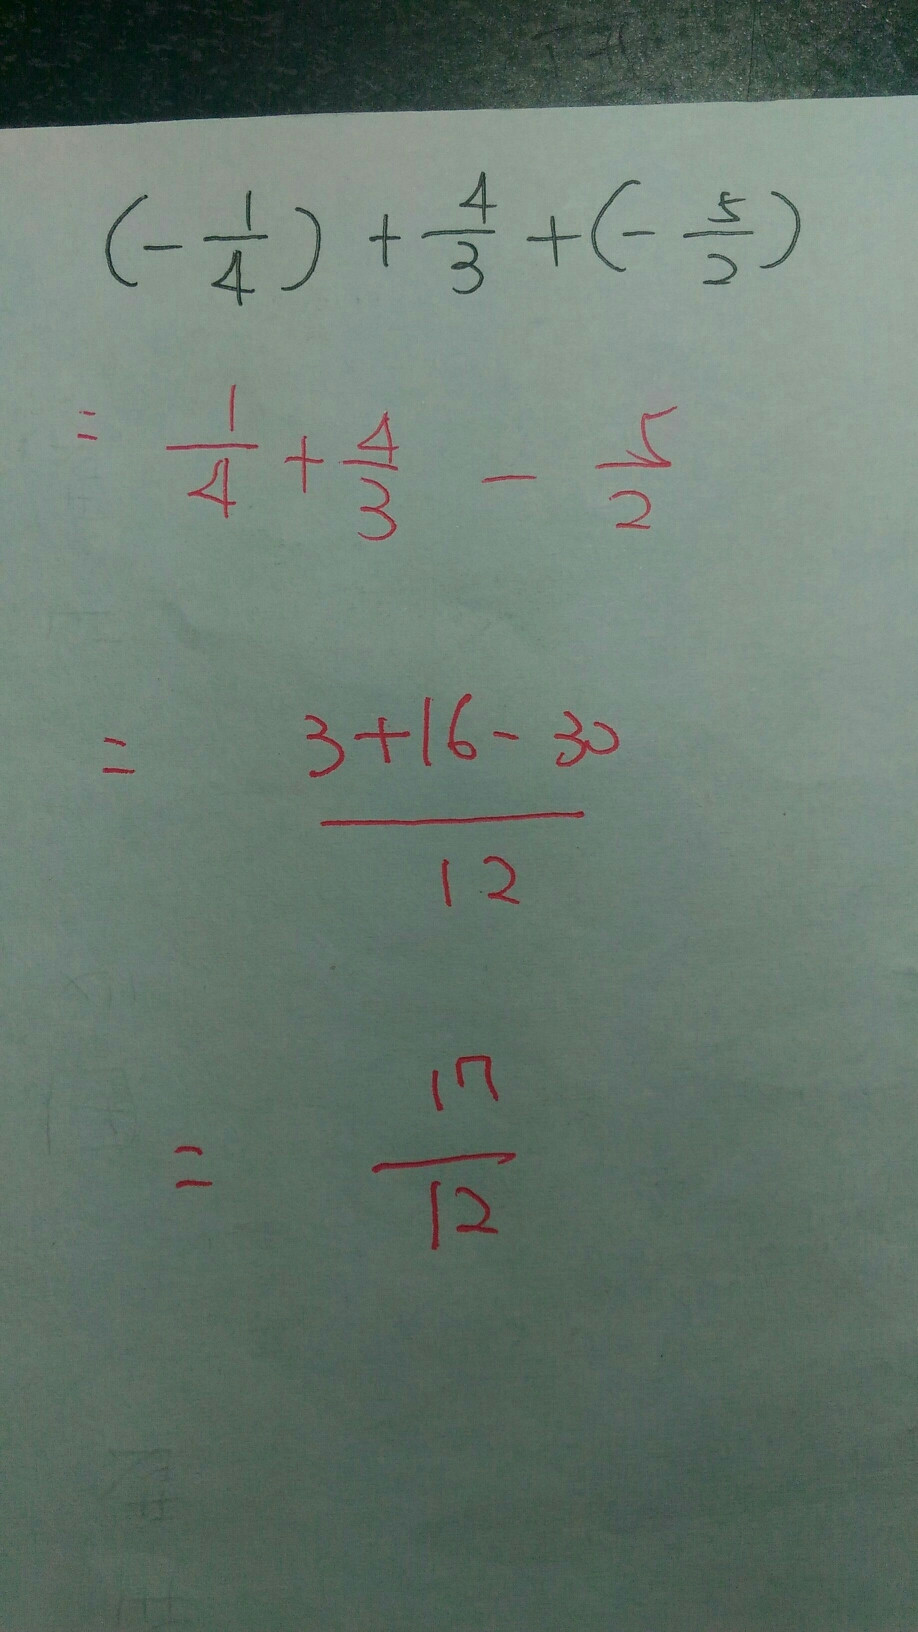 (- 1/4) + 4/3 + (- 5/2)
= 1/4 + 4/3 - 5/2
= (3+16-30)/12
= 17/12